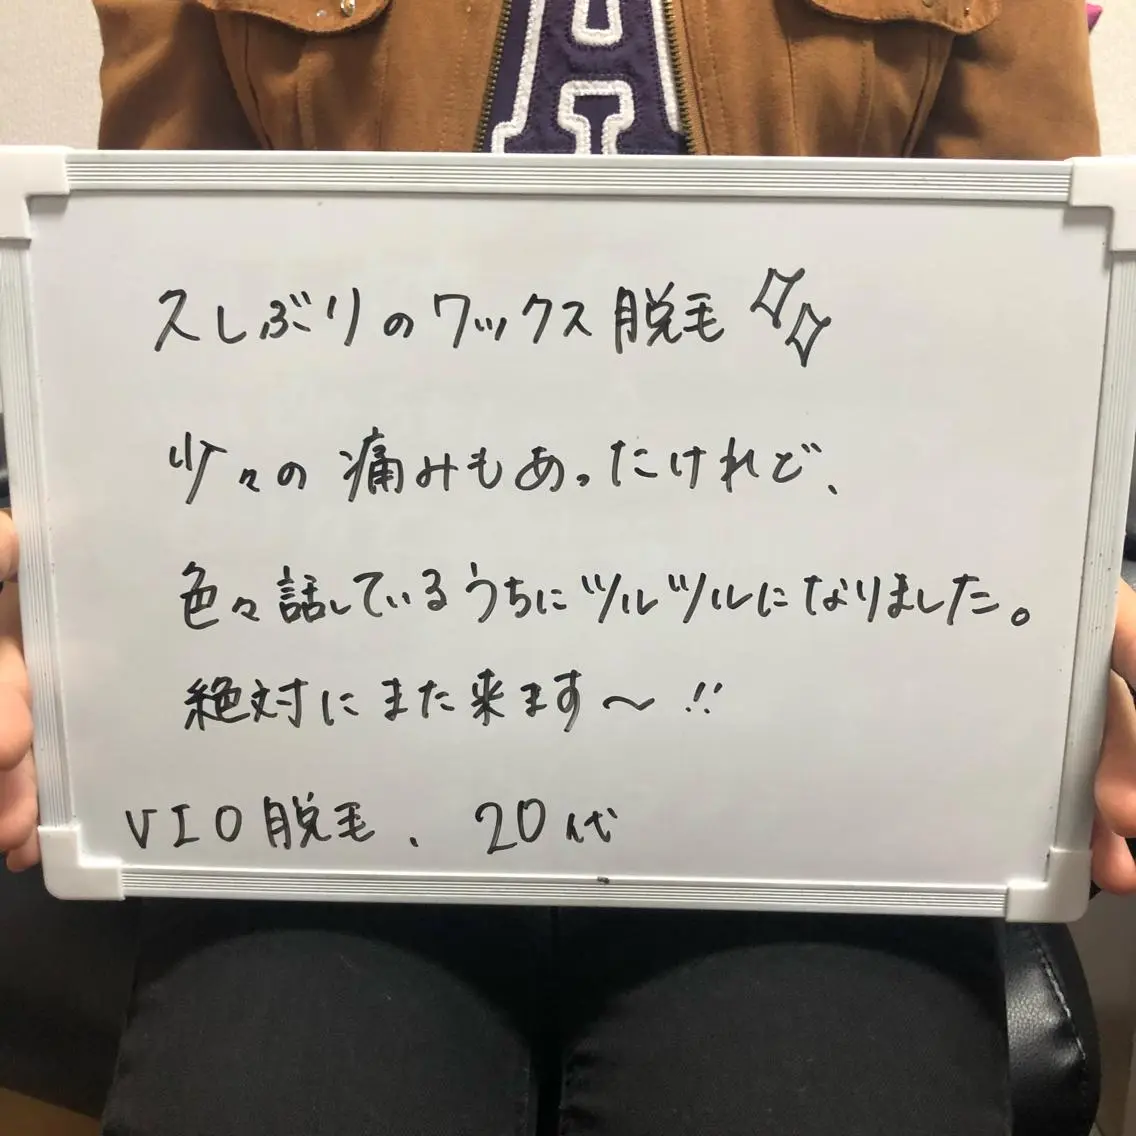 A
久しぶりのワックス脱毛
少々の痛みもあったけれど、
色々話しているうちにツルツルになりました。
絶対にまた来ます〜!!
VIO脱毛、20代